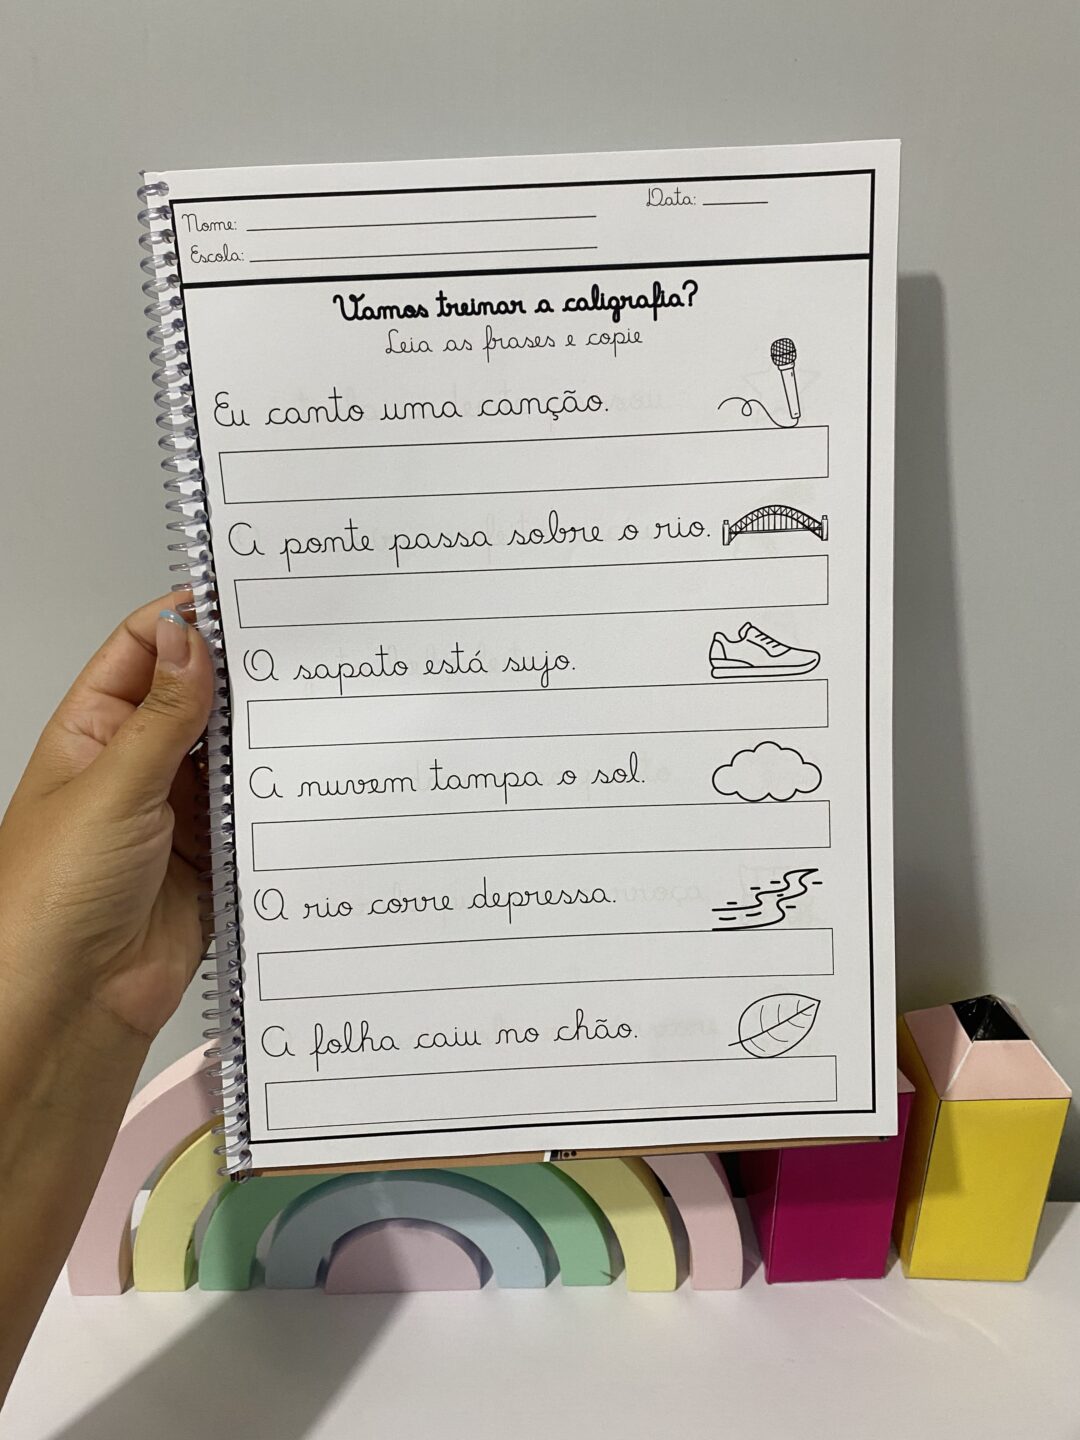 Nome: ____________ Data: ____
Escola: ____________
Vamos treinar a caligrafia?
Leia as frases e copie
Eu canto uma canção.
A ponte passa sobre o rio.
O sapato está sujo.
A nuvem tampa o sol.
O rio corre depressa.
A folha caiu no chão.